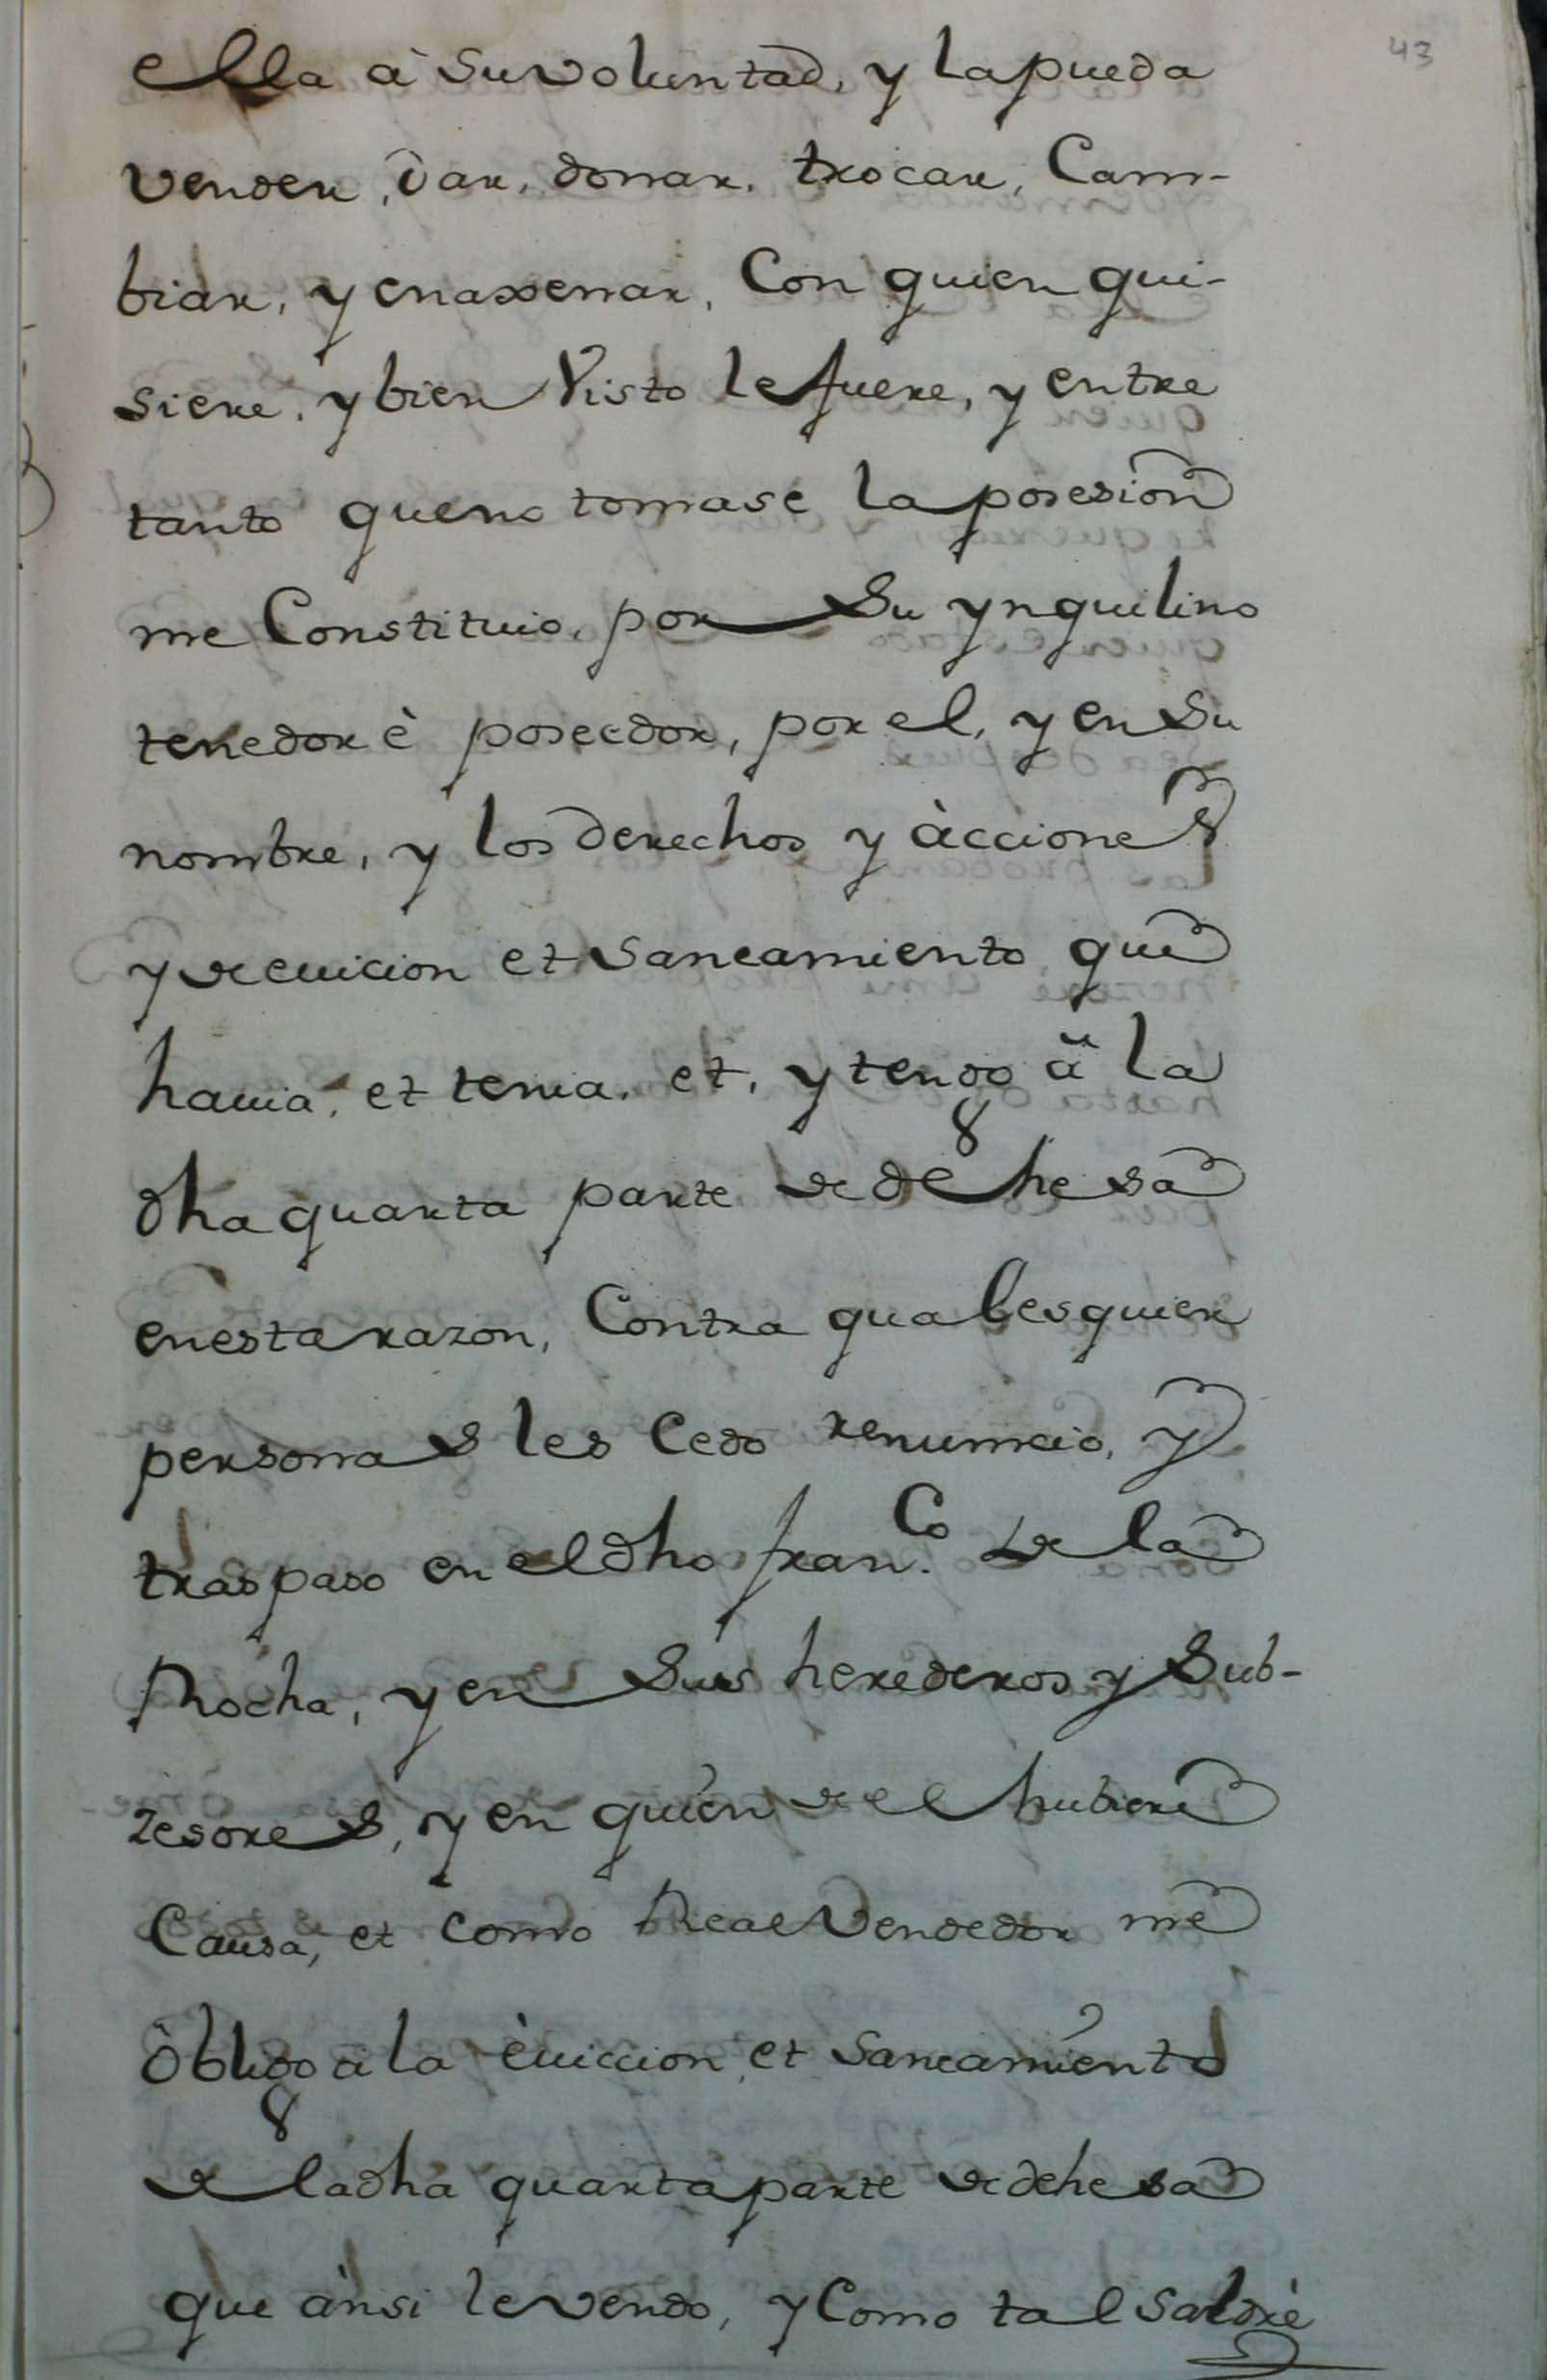 43
ella à Su voluntad, y la pueda
vender, dar, donar, trocar, Cam-
biar, y enaxenar, Con quien qui-
siere, y bien Visto le fuere, y entre
tanto que no tomase la posesion
me Constituio, por Su ynquilino
tenedor è poseedor, por el, y en Su
nombre, y los derechos y àcciones
y de evicion et saneamiento que
hauia, et tenia, et, y tengo à la
dha quarta parte de dehesa
en esta razon, Contra qualesquier
personas les Cedo renuncio, y
traspaso en el dho fran.Co de la
Rocha, y en Sus herederos y Sub-
zesores, y en quien de el hubiere
Causa, et como Real Vendedor me
òbligo a la èuiccion, et Saneamiento
de la dha quarta parte de dehesa
que ànsi le vendo, y Como tal Saldrè